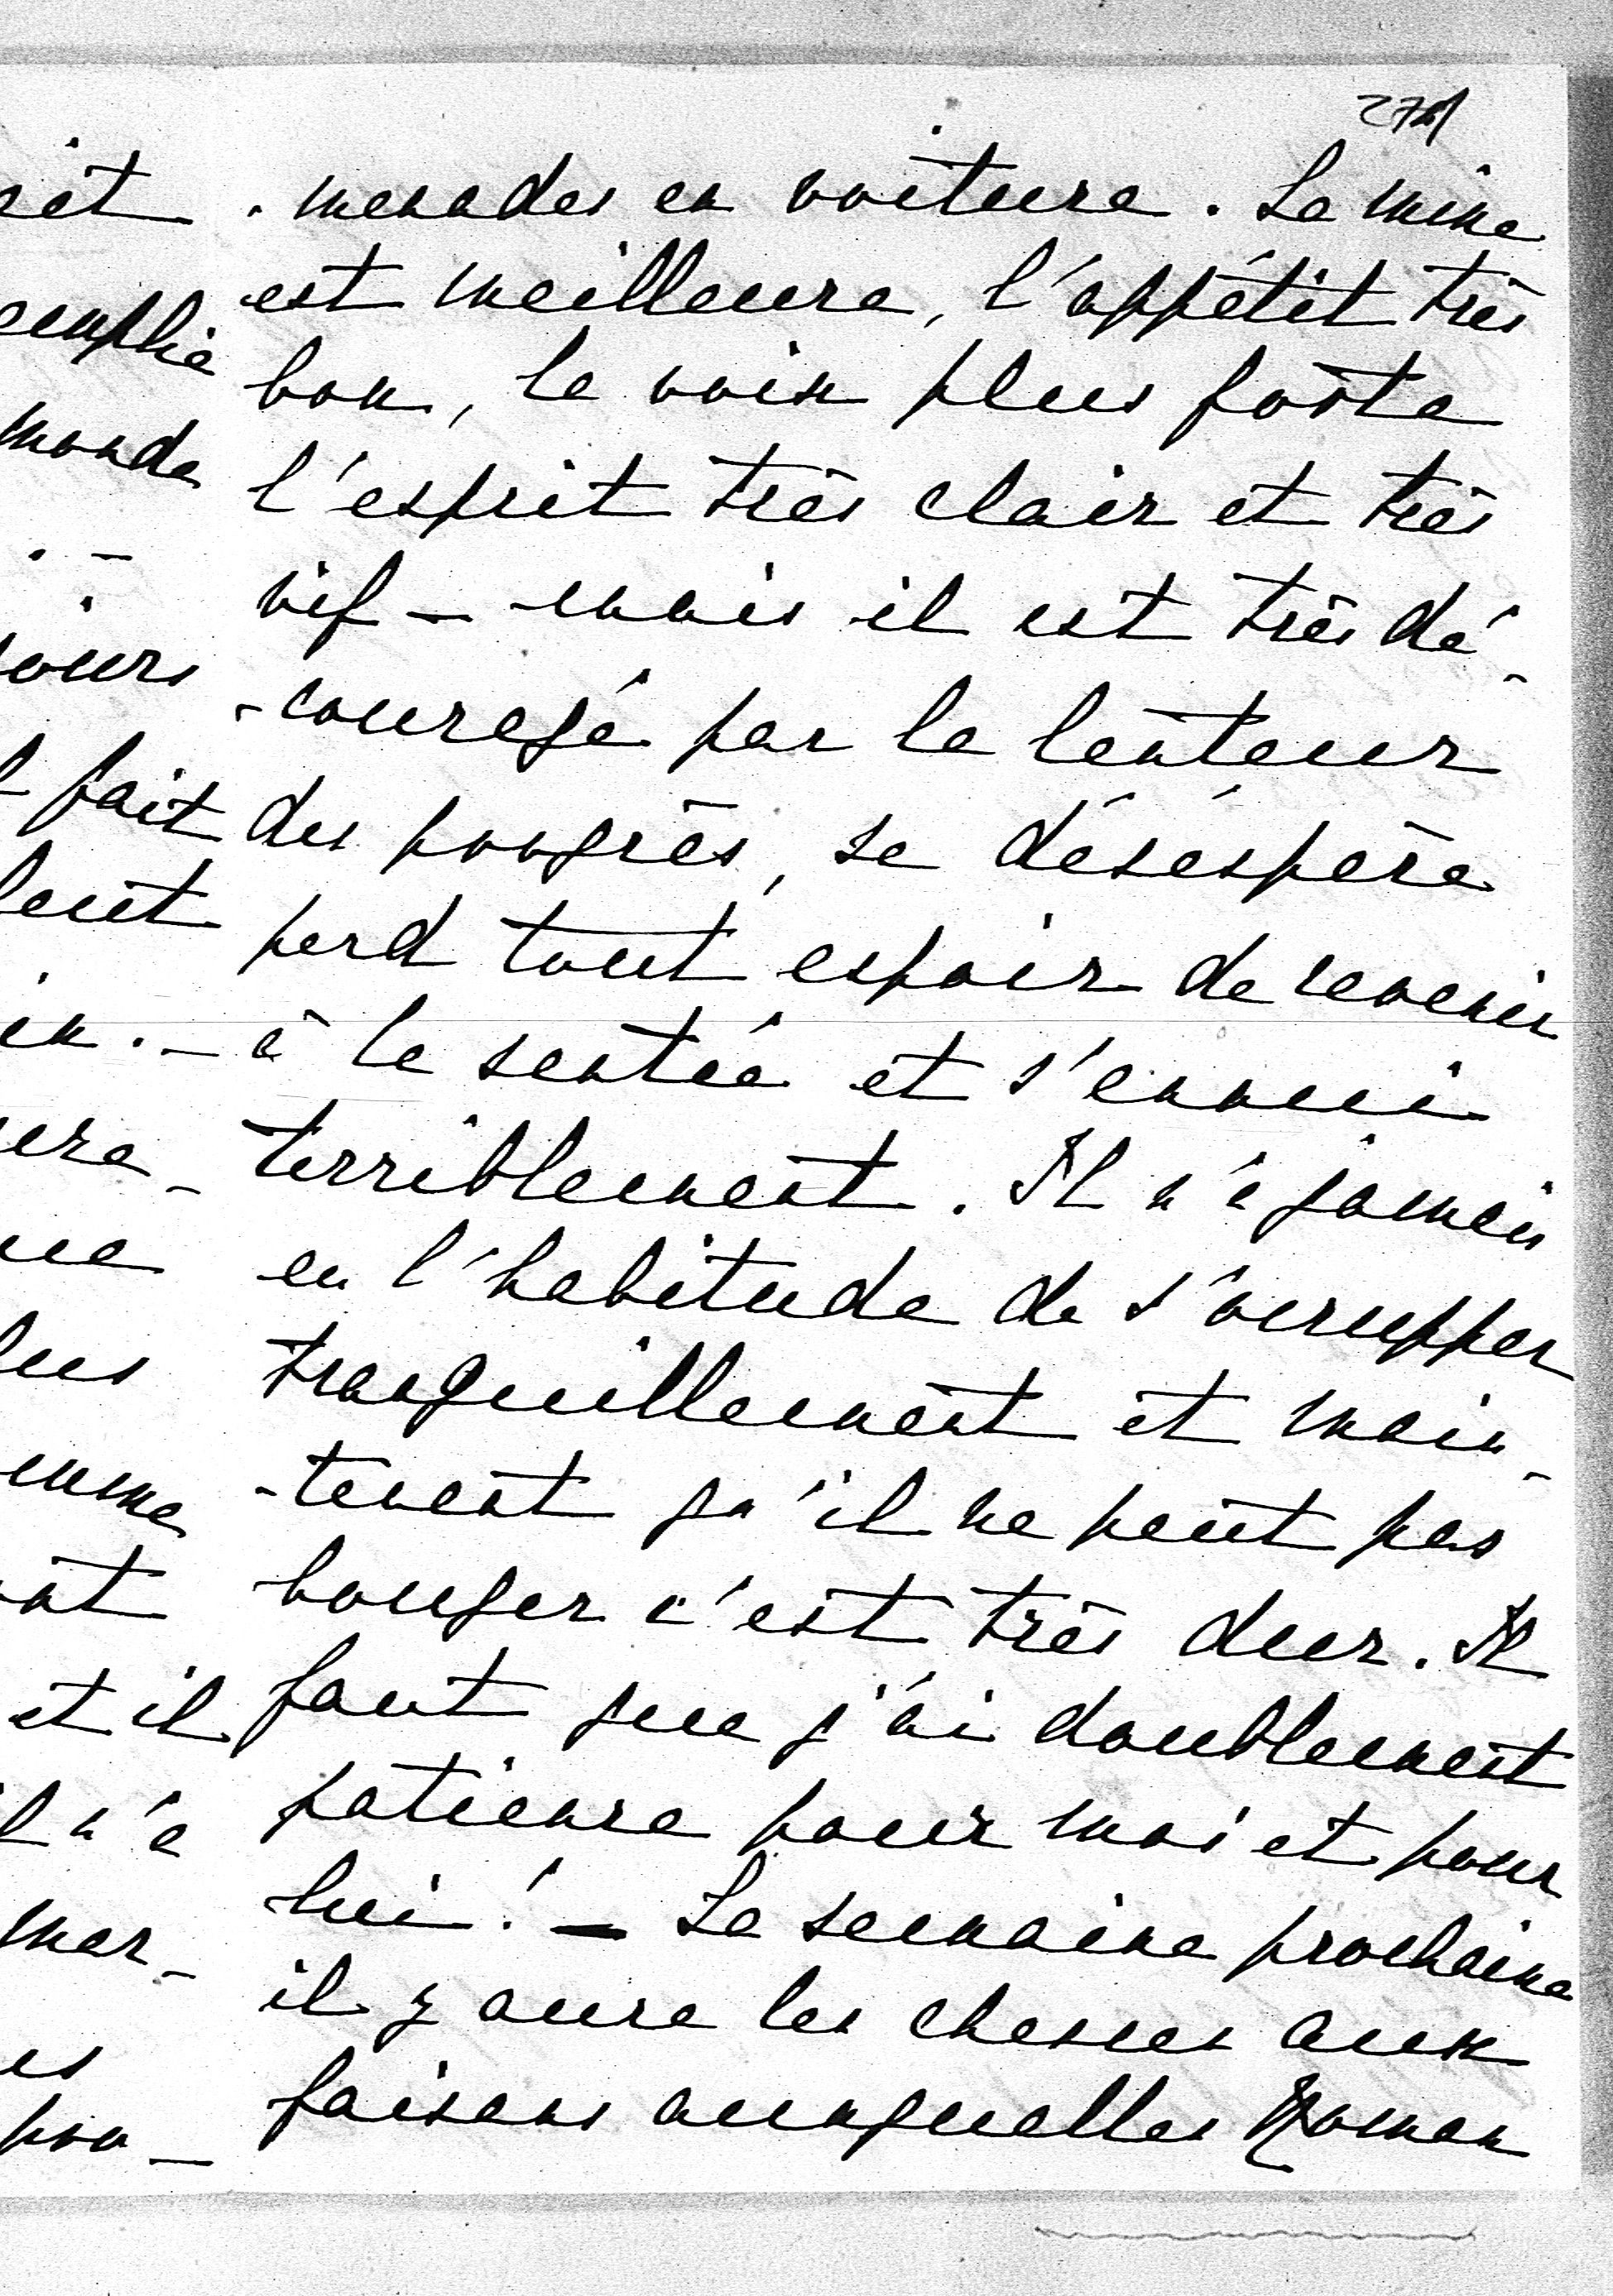 274
-menades en voiture. La mine
est meilleure, l'appétit très
bon, la voix plus forte
l'esprit très clair et très
vif — mais il est très dé-
-couragé par la lenteur
des progrès, se désespère
perd tout espoir de revenir
à la santée et s'ennui
terriblement. Il n'a jamais
eu l'habitude de s'occupper
tranquillement et main-
-tenant qu'il ne peut pas
bouger c'est très dur. Il
faut que j'ai doublement
patience pour moi et pour
lui! — La semaine prochaine
il y aura les chasses aux
faisans auxquelles Roman
emplie
monde
ours
fait
et il
l n'a
mar-